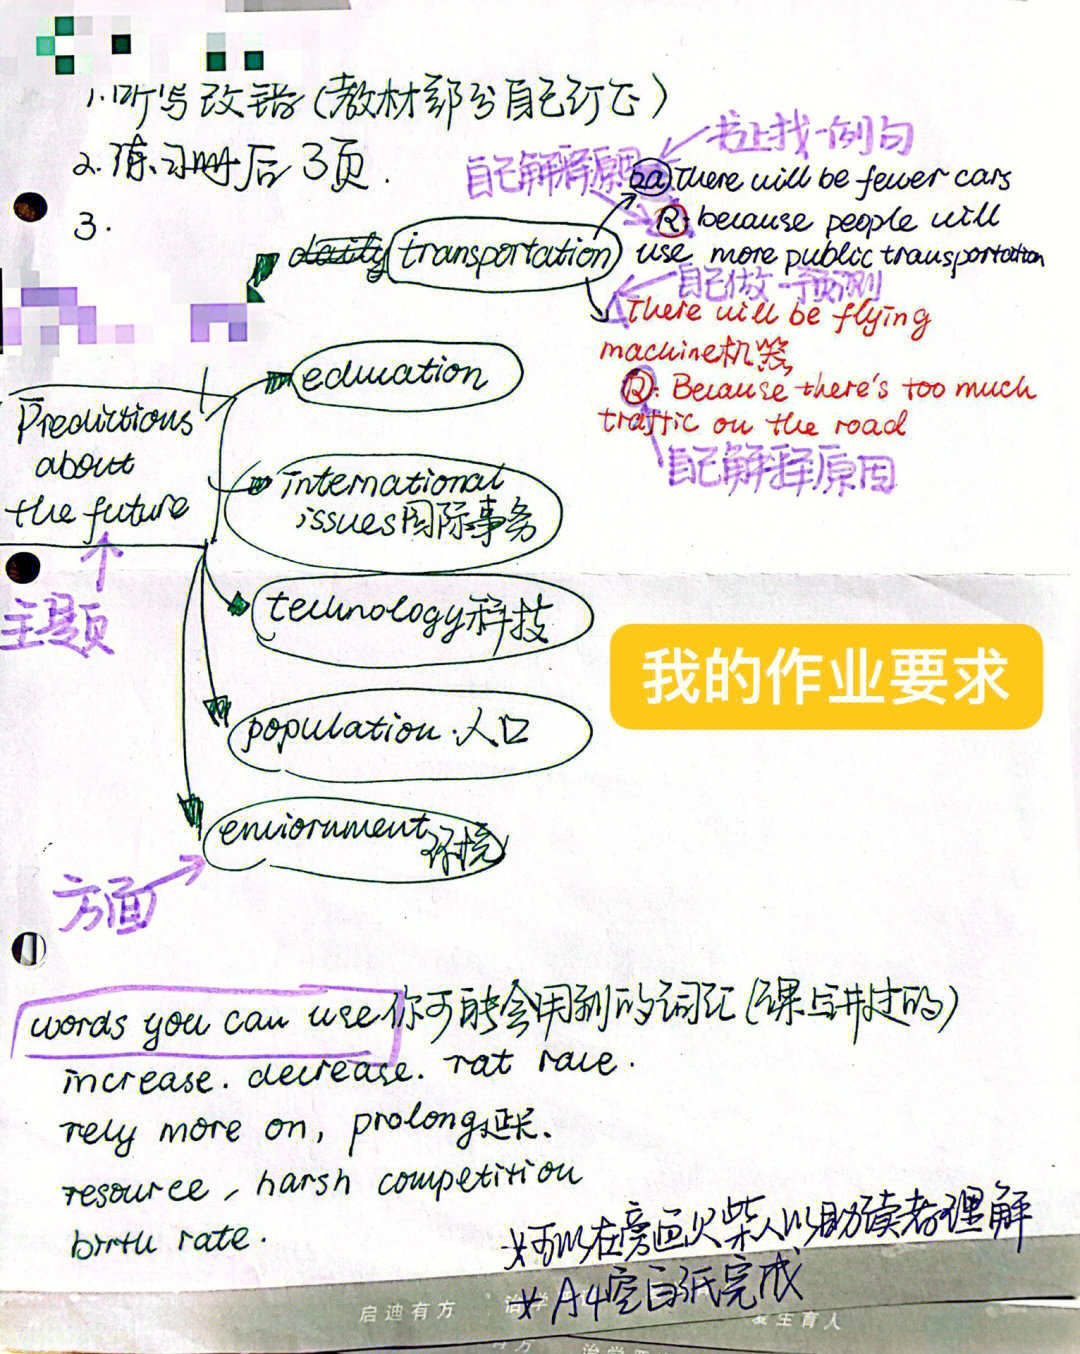 1.听写改错(教材部分自己订正)
2.练习册后3页.
3.
transportation
书上找一例句
自己解释原因
ba There will be fewer cars
R: because people will
use more public transportation
自己做一预测
There will be flying
machine机器
R: Because there's too much
traffic on the road
自己解释原因
education
Predictions
about
the future
主题
international
issues国际事务
technology科技
我的作业要求
population.人口
enviornment环境
方面
words you can use你可能会用到的词汇(课上讲过的)
increase. decrease. rat race.
rely more on, prolong延长、
resource, harsh competition
birth rate.
*可以在旁画火柴人以助读者理解
*A4空白纸完成
启迪有方
治学
发生育人